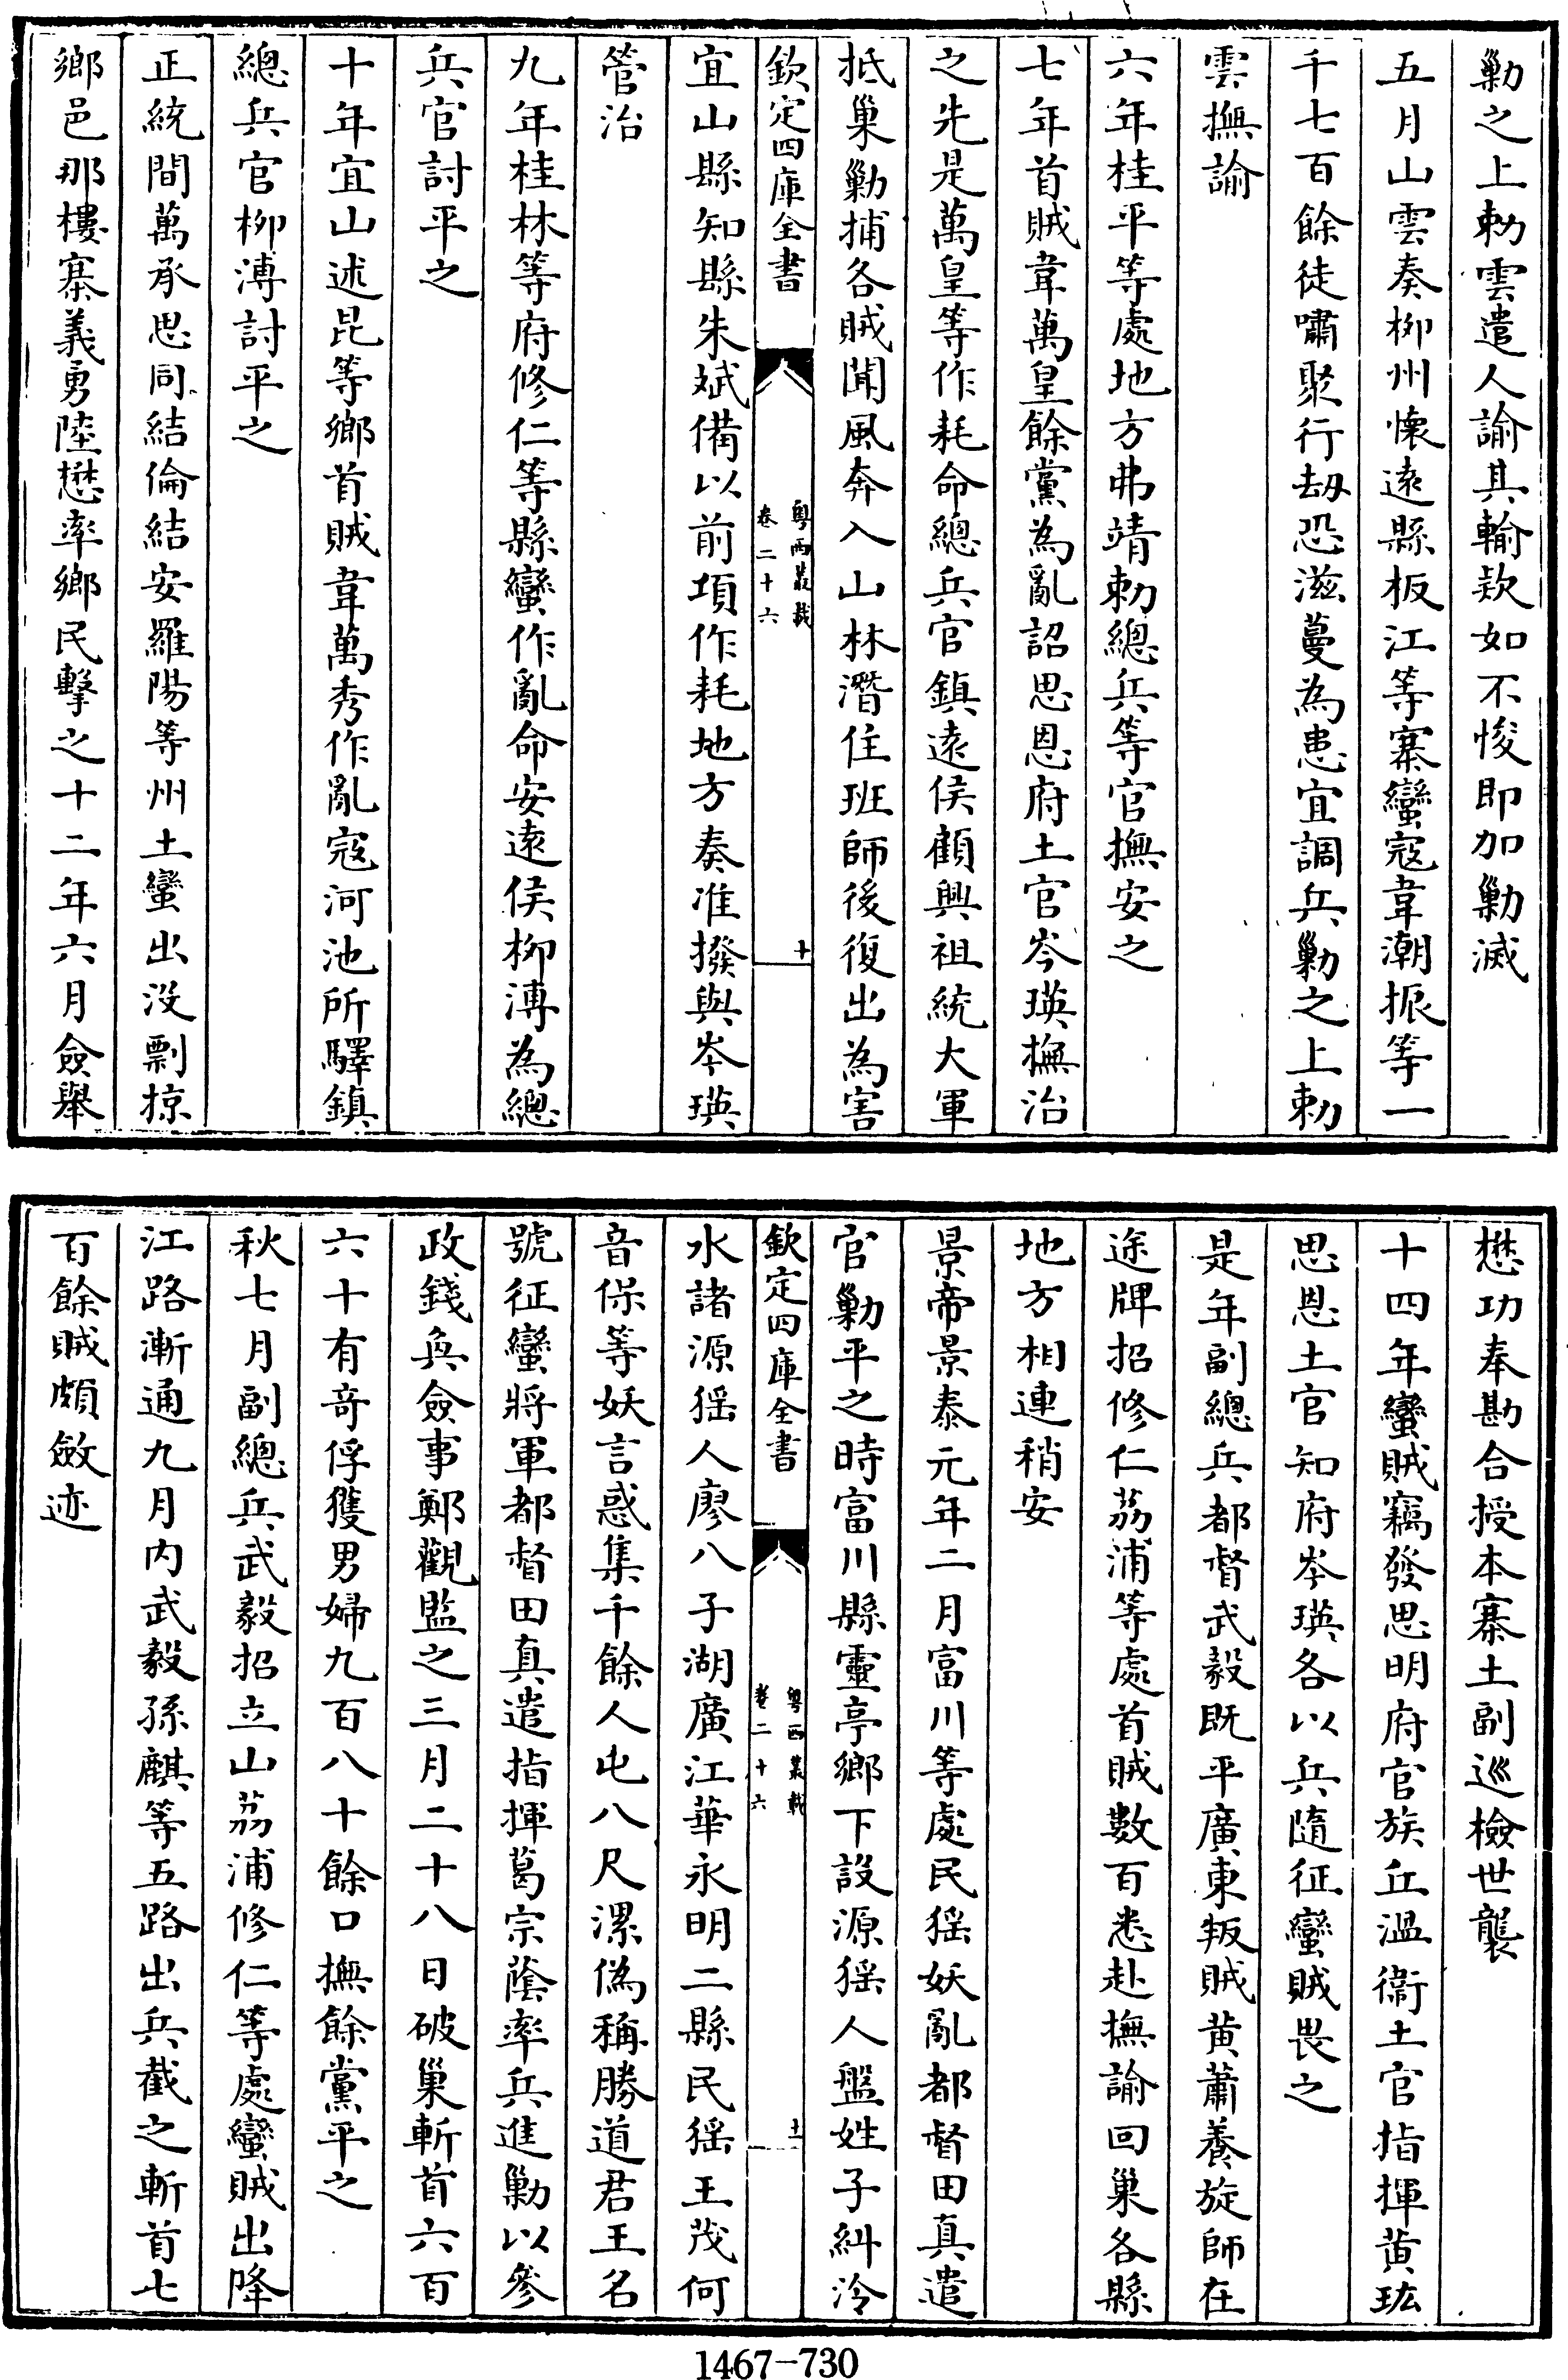 勦之上勅雲遣人諭其輸欵如不悛即加勦滅
五月山雲奏柳州懷遠縣板江等寨蠻寇韋潮振等一
千七百餘徒嘯聚行刼恐滋蔓為患宜調兵勦之上勅
雲撫諭
六年桂平等處地方弗靖勅總兵等官撫安之
七年首賊韋萬皇餘黨為亂詔思恩府土官岑瑛撫治
之先是萬皇等作耗命總兵官鎮遠侯顧興祖統大軍
抵巢勦捕各賊聞風奔入山林潛住班師後復出為害
欽定四庫全書
粵西叢載
卷二十六
十
宜山縣知縣朱斌備以前項作耗地方奏准撥與岑瑛
管治
九年桂林等府修仁等縣蠻作亂命安遠侯柳溥為總
兵官討平之
十年宜山述昆等鄉首賊韋萬秀作亂寇河池所驛鎮
總兵官柳溥討平之
正統間萬承思同結倫結安羅陽等州土蠻出沒剽掠
鄉邑那樓寨義勇陸懋率鄉民擊之十二年六月僉舉
懋功奉勘合授本寨土副巡檢世襲
十四年蠻賊竊發思明府官族丘溫衞土官指揮黄玹
思恩土官知府岑瑛各以兵隨征蠻賊畏之
是年副總兵都督武毅既平廣東叛賊黄蕭養旋師在
途牌招修仁荔浦等處首賊數百悉赴撫諭回巢各縣
地方相連稍安
景帝景泰元年二月富川等處民猺妖亂都督田真遣
官勦平之時富川縣靈亭鄉下設源猺人盤姓子糾泠
欽定四庫全書
粵西叢載
卷二十六
十一
水諸源猺人廖八子湖廣江華永明二縣民猺王茂何
音保等妖言惑集千餘人屯八尺漯偽稱勝道君王名
號征蠻將軍都督田真遣指揮葛宗蔭率兵進勦以參
政錢奐僉事鄭觀監之三月二十八日破巢斬首六百
六十有竒俘獲男婦九百八十餘口撫餘黨平之
秋七月副總兵武毅招立山荔浦修仁等處蠻賊出降
江路漸通九月内武毅孫麒等五路出兵截之斬首七
百餘賊頗斂迹
1467-730